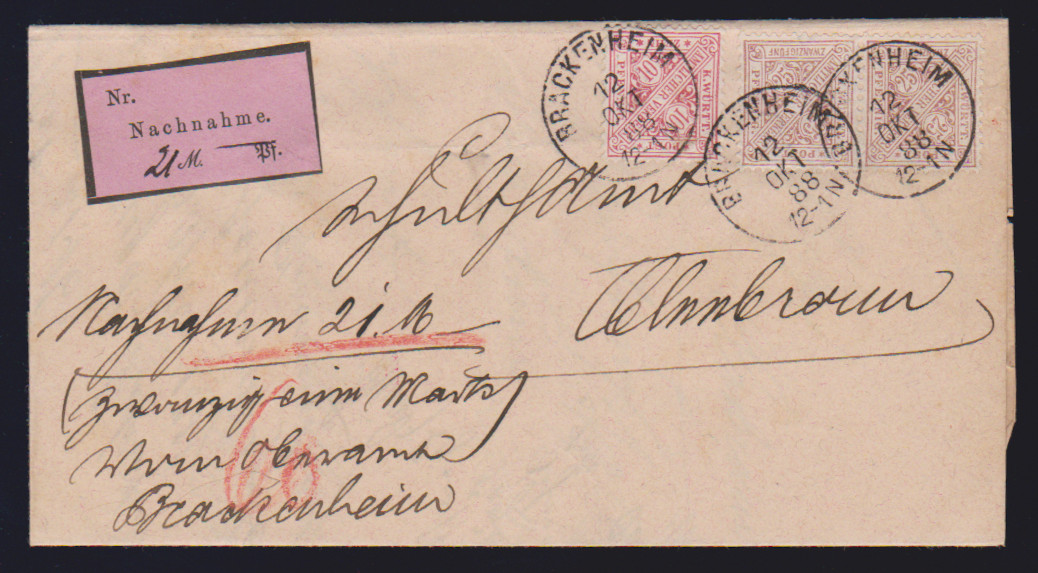 Nr.
Nachnahme.
21 M. — Pf.
BRACKENHEIM
12
OKT
88
12-1N
BRACKENHEIM
12
OKT
88
12-1N
BRACKENHEIM
12
OKT
88
12-1N
10
K. WÜRTT.
25
ZWANZIGFÜNF
25
Schulthßamt
Nachnahme 21 M
(Zwanzig eine Mark)
Vom Oberamt
Brackenheim